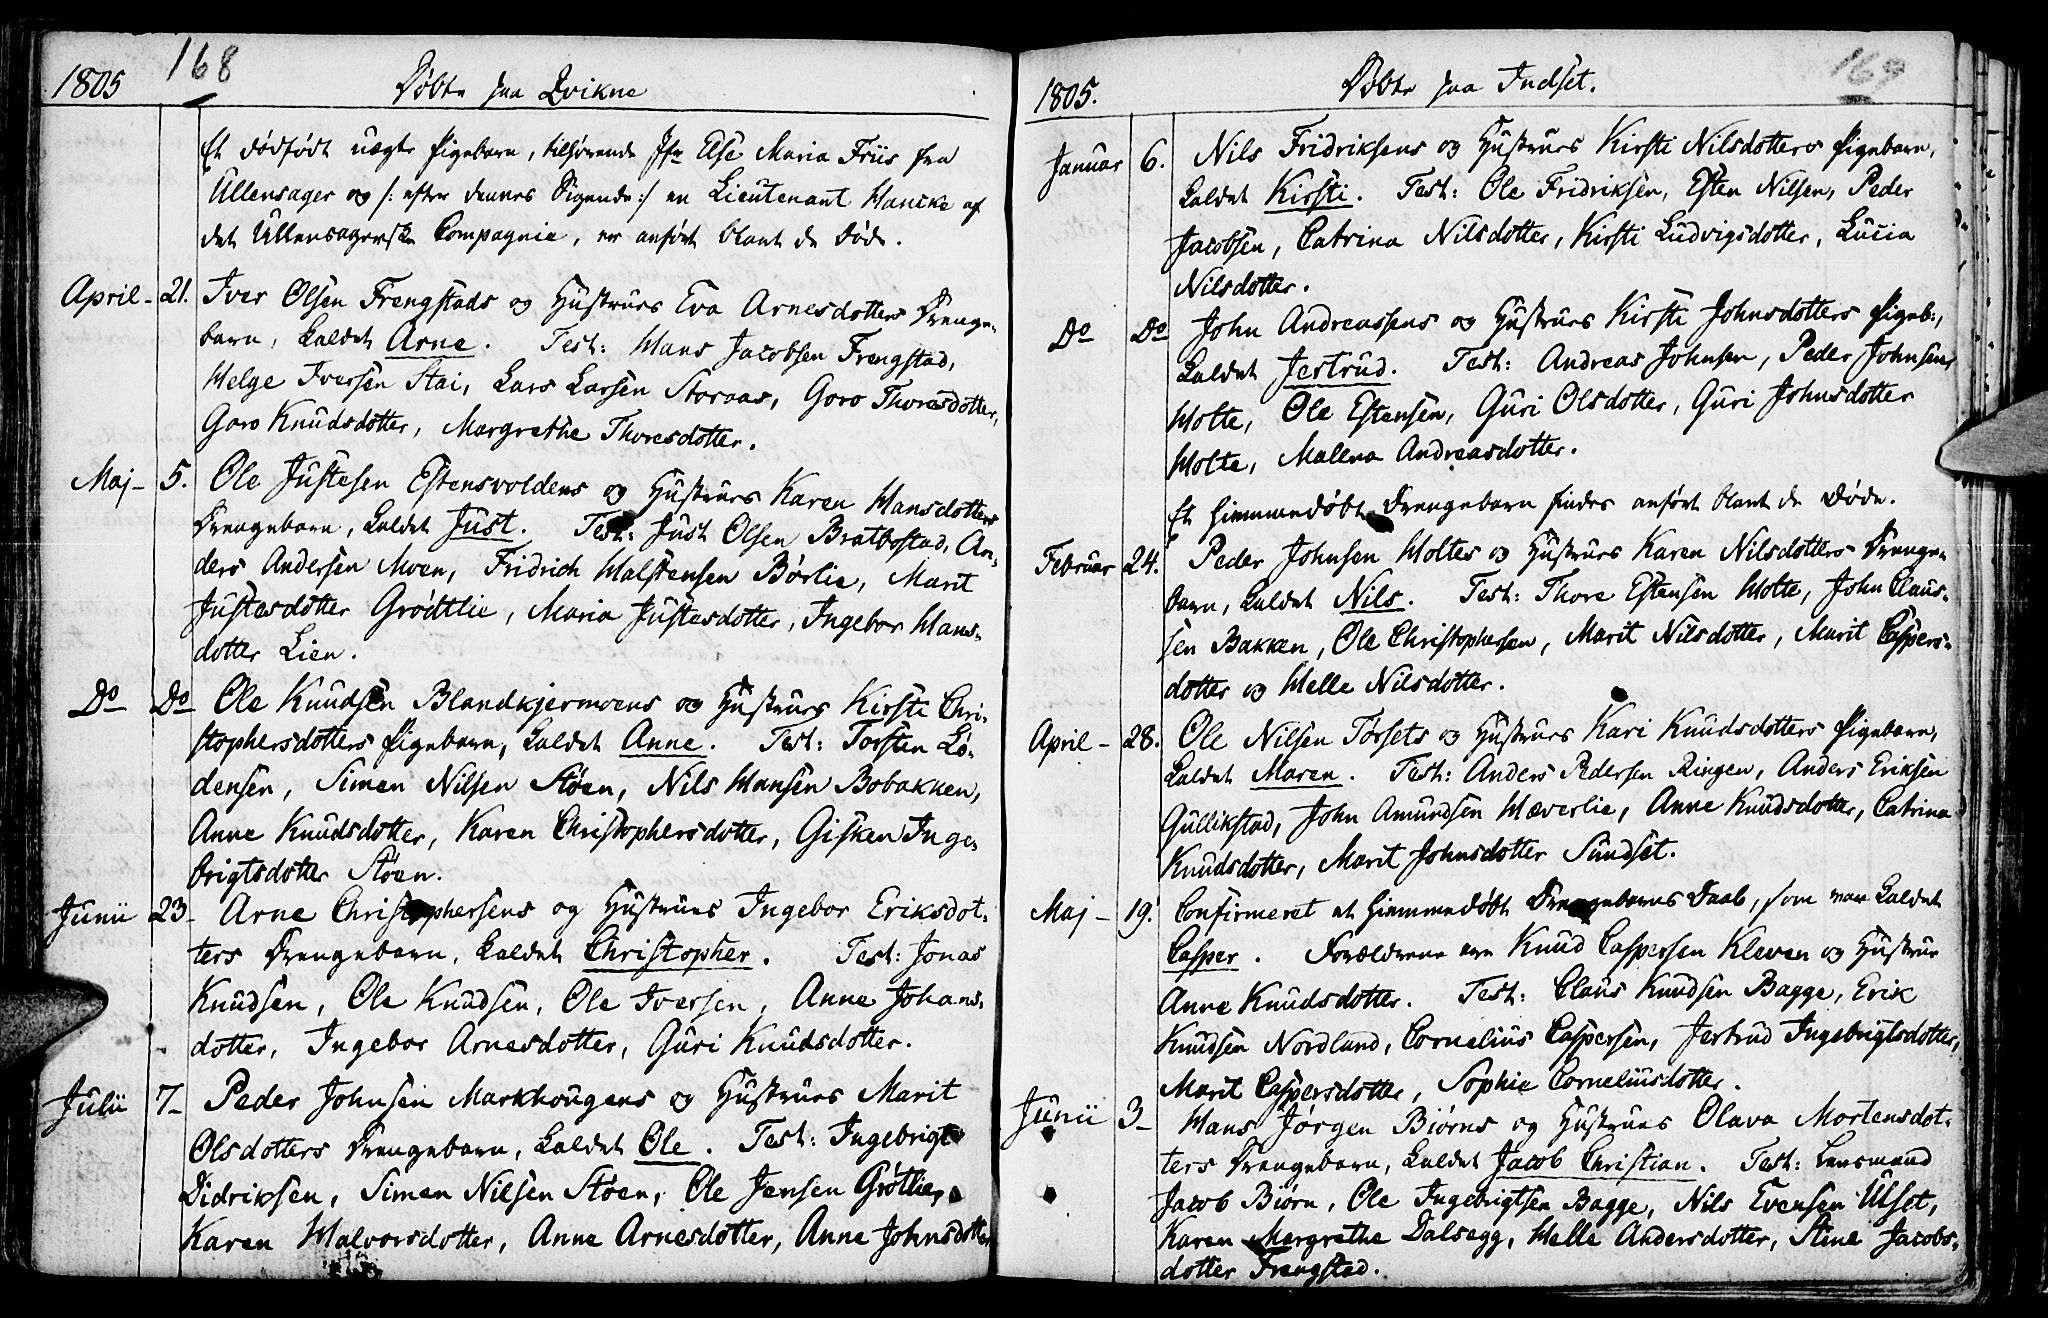 1805 168
Døbte paa Qvikne
Et dødfødt uægte Pigebarn, tilhørende Jfr Else Maria Friis fra
Ullensager og /: efter dennes Sigende :/ en Lieutenant Hancke af
det Ullensagerske Compagnie, er anført blant de Døde.
April - 21. Iver Olsen Frengstads og Hustrues Eva Arnesdotters Drenge-
barn, kaldet Arne. Test: Hans Jacobsen Frengstad,
Helge Iversen Stai, Lars Larsen Storaas, Goro Thoresdotter,
Goro Knudsdotter, Margrethe Thoresdotter.
Maj - 5. Ole Justesen Estensvoldens og Hustrues Karen Hansdotters
Drengebarn, kaldet Just. Test: Just Olsen Bratbostad, An-
ders Andersen Moen, Fridrich Halstensen Børlie, Marit
Justesdotter Grødtlie, Maria Justesdotter, Ingebor Hans-
dotter Lien.
Do Do Ole Knudsen Blandkjermoens og Hustrues Kirsti Chri-
stophersdotters Pigebarn, kaldet Anne. Test: Torsten Lo-
densen, Simen Nilsen Støen, Nils Hansen Bobakken,
Anne Knudsdotter, Karen Christophersdotter, Gisken Inge-
brigtsdotter Støen.
Junii 23 - Arne Christophersens og Hustrues Ingebor Eriksdot-
ters Drengebarn, kaldet Christopher. Test: Jonas
Knudsen, Ole Knudsen, Ole Iversen, Anne Johans-
dotter, Ingebor Arnesdotter, Guri Knudsdotter.
Julii 7 - Peder Johnsen Markhougens og Hustrues Marit
Olsdotters Drengebarn, kaldet Ole. Test: Ingebrigt
Didriksen, Simen Nilsen Støen, Ole Jensen Grøtlie,
Karen Halvorsdotter, Anne Arnesdotter, Anne Johnsdotter
1805. Døbte paa Indset. 169
Januar 6. Nils Fridriksens og Hustrues Kirsti Nilsdotters Pigebarn,
kaldet Kirsti. Test: Ole Fridriksen, Esten Nilsen, Peder
Jacobsen, Catrina Nilsdotter, Kirsti Ludvigsdotter, Lucia
Nilsdotter.
Do Do John Andreassens og Hustrues Kirsti Johnsdotters Pigeb:,
kaldet Jertrud. Test: Andreas Johnsen, Peder Johnsen
Holte, Ole Estensen, Guri Olsdotter, Guri Johnsdotter
Holte, Malena Andreasdotter.
Et hiemmedøbt Drengebarn findes anført blant de Døde.
Februar 24. Peder Johnsen Holtes og Hustrues Karen Nilsdotters Drenge-
barn, kaldet Nils. Test: Thore Estensen Holte, John Claus-
sen Bakken, Ole Christophersen, Marit Nilsdotter, Marit Caspers-
dotter og Helle Nilsdotter.
April - 28. Ole Nilsen Torsets og Hustrues Kari Knudsdotters Pigebarn,
kaldet Maren. Test: Anders Pedersen Ringen, Anders Eriksen
Gullikstad, John Amundsen Hæverlie, Anne Knudsdotter, Catrina
Knudsdotter, Marit Johnsdotter Sundset.
Maj - 19. Confirmeret et hiemmedøbt Drengebarns Daab, som var kaldet
Casper. Forældrene ere Knud Caspersen Kleven og Hustrue
Anne Knudsdotter. Test: Claus Knudsen Bagge, Erik
Knudsen Nordland, Cornelius Caspersen, Jertrud Ingebrigtsdotter,
Marit Caspersdotter, Sophie Corneliusdotter.
Junii 3 - Hans Jørgen Biørns og Hustrues Olava Mortensdot-
ters Drengebarn, kaldet Jacob Christian. Test: Lensmand
Jacob Biørn, Ole Ingebrigtsen Bagge, Nils Evensen Ulset,
Karen Mergrethe Dalsegg, Helle Andersdotter, Stine Jacobs-
dotter Frengstad.